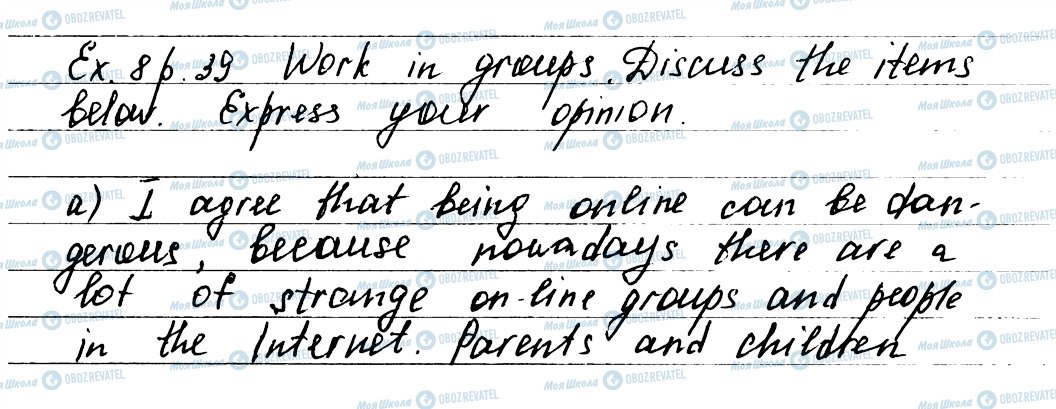 Ex. 8 p. 39 Work in groups. Discuss the items
below. Express your opinion.
a) I agree that being online can be dan-
gerous, because nowadays there are a
lot of strange on-line groups and people
in the Internet. Parents and children